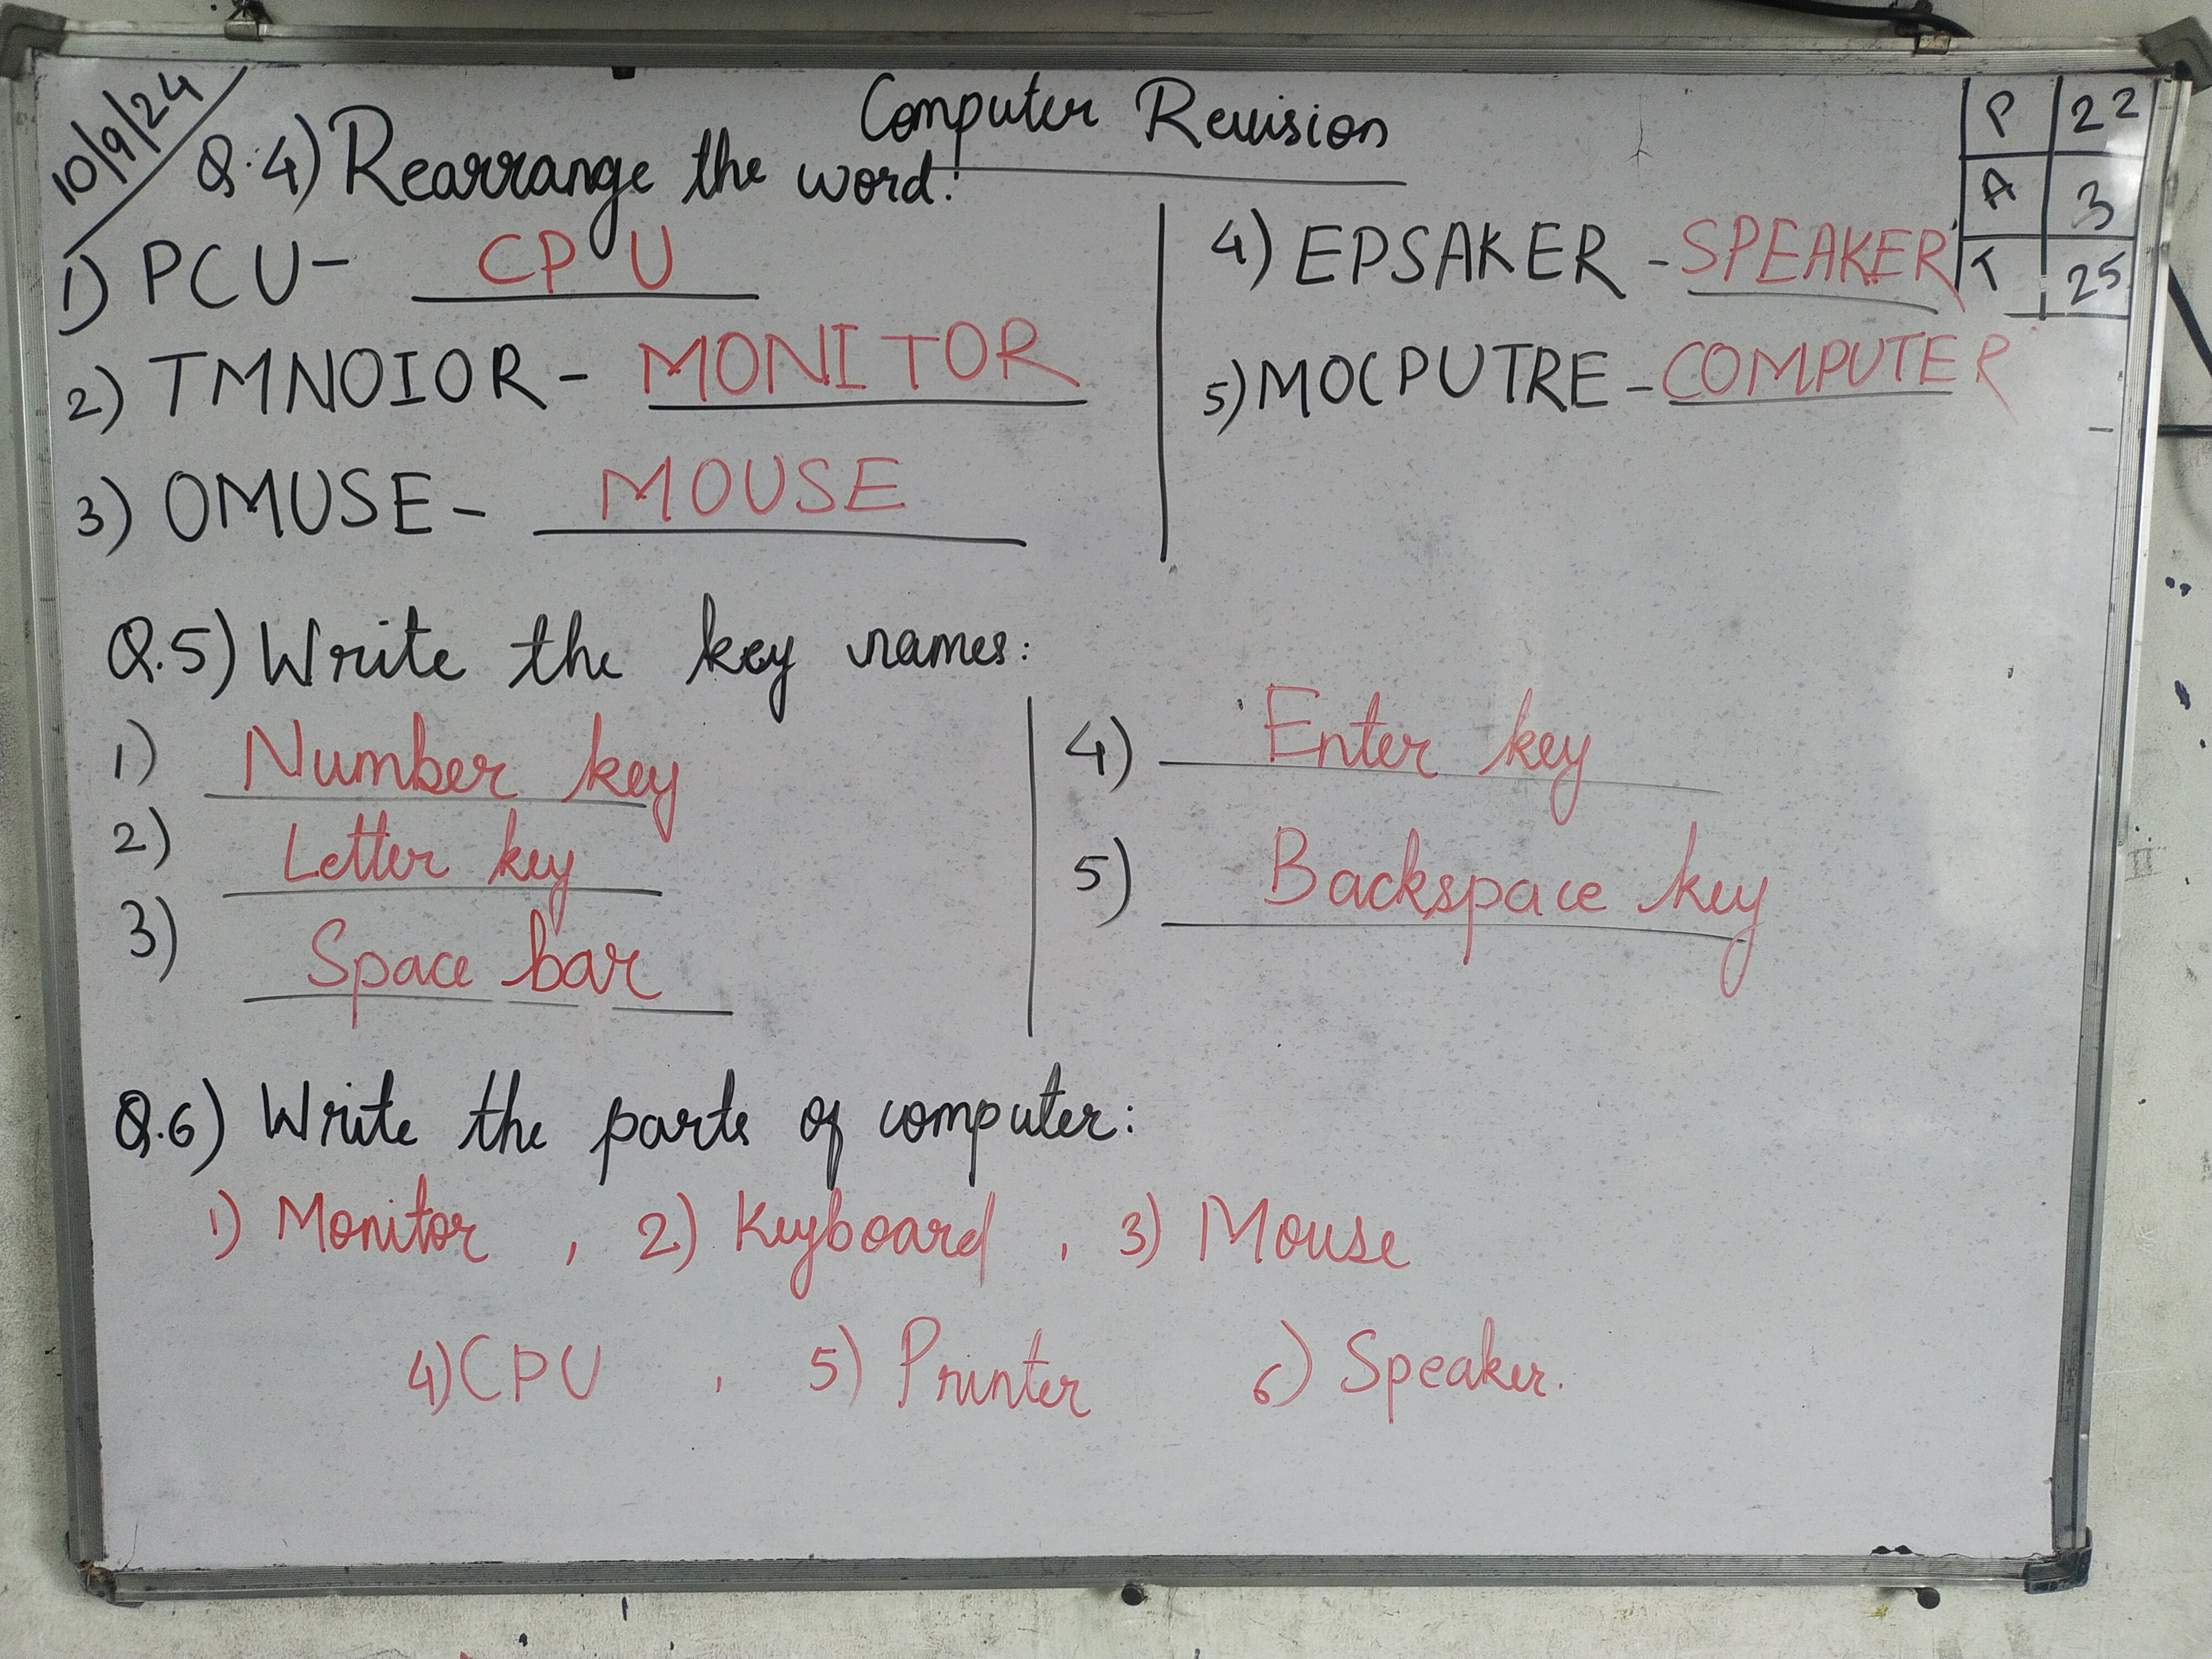 10/9/24
Computer Revision
P 22
A 3
T 25
Q.4) Rearrange the word:
1) PCU- CPU
2) TMNOIOR - MONITOR
3) OMUSE - MOUSE
4) EPSAKER - SPEAKER
5) MOCPUTRE - COMPUTER
Q.5) Write the key names:
1) Number key
2) Letter key
3) Space bar
4) Enter key
5) Backspace key
Q.6) Write the parts of computer:
1) Monitor , 2) Keyboard , 3) Mouse
4) CPU , 5) Printer 6) Speaker.